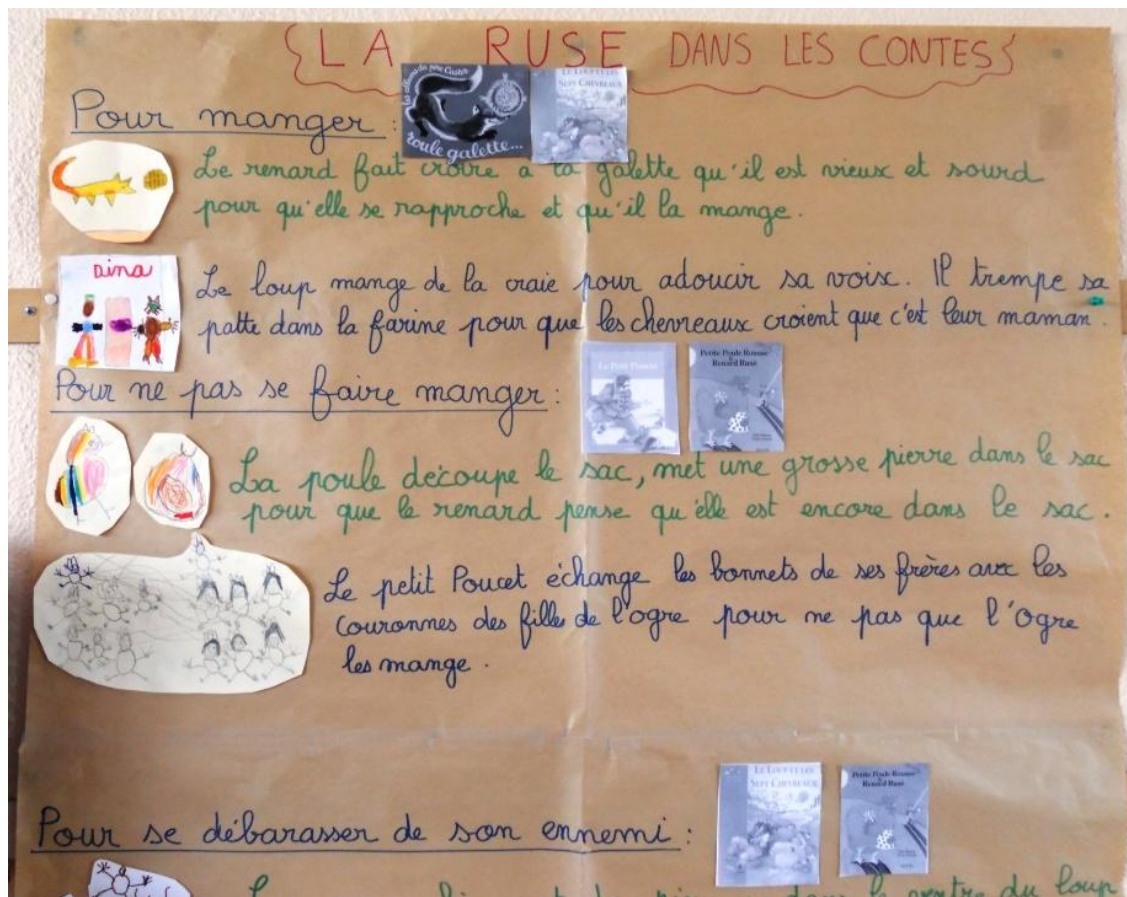 LA RUSE DANS LES CONTES
Les albums du père Castor
roule galette...
LE LOUP ET LES
SEPT CHEVREAUX
Pour manger :
Le renard fait croire à la galette qu'il est vieux et sourd
pour qu'elle se rapproche et qu'il la mange.
aina
Le loup mange de la craie pour adoucir sa voix. Il trempe sa
patte dans la farine pour que les chevreaux croient que c'est leur maman.
Pour ne pas se faire manger :
Le Petit Poucet
Petite Poule Rousse
&
Renard Rusé
La poule découpe le sac, met une grosse pierre dans le sac
pour que le renard pense qu'elle est encore dans le sac.
Le petit Poucet échange les bonnets de ses frères avec les
couronnes des filles de l'ogre pour ne pas que l'ogre
les mange.
LE LOUP ET LES
SEPT CHEVREAUX
Petite Poule Rousse
&
Renard Rusé
Pour se débarasser de son ennemi :
dans le ventre du loup